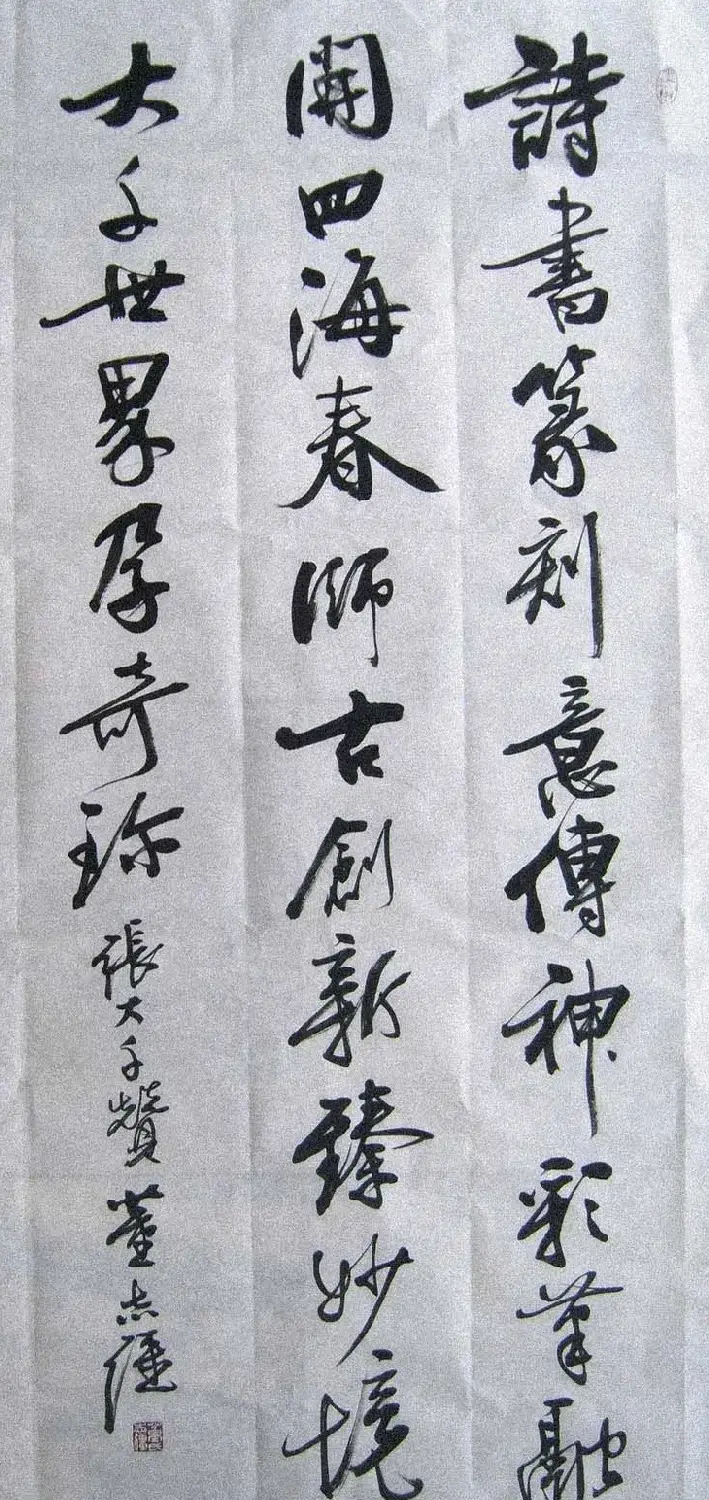 詩書篆刻意傳神彩筆融
開四海春師古創新臻妙境
大千世界孕奇珍 張大千贊 董志强